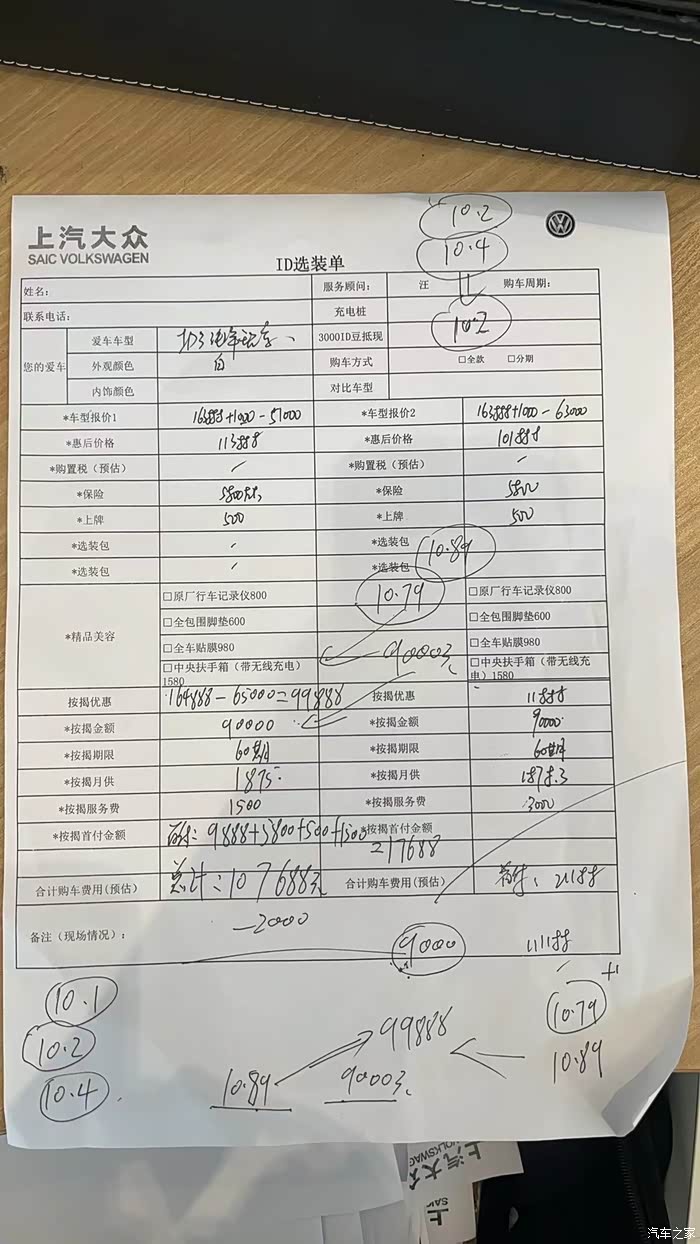 10.2
10.4
上汽大众
SAIC VOLKSWAGEN
ID选装单
姓名： 服务顾问： 汪 购车周期：
联系电话： 充电桩 10.2
您的爱车 爱车车型 3000ID豆抵现
外观颜色 白 购车方式 □全款 □分期
内饰颜色 对比车型
*车型报价1 163888+1000-51000 *车型报价2 163888+1000-63000
*惠后价格 113888 *惠后价格 101888
*购置税（预估） / *购置税（预估） /
*保险 5800 *保险 5800
*上牌 500 *上牌 500
*选装包 / *选装包 10.89
*选装包 / *选装包
*精品美容 □原厂行车记录仪800 10.79 □原厂行车记录仪800
□全包围脚垫600 □全包围脚垫600
□全车贴膜980 9000元 □全车贴膜980
□中央扶手箱（带无线充电）1580 □中央扶手箱（带无线充电）1580
按揭优惠 164888-65000=99888 按揭优惠 11888
*按揭金额 90000 *按揭金额 90000
*按揭期限 60期 *按揭期限 60期
*按揭月供 1875 *按揭月供 1878.3
*按揭服务费 1500 *按揭服务费 3000
*按揭首付金额 首付：9888+5800+500+1500 *按揭首付金额
=17688
合计购车费用(预估) 总计：107688元 合计购车费用(预估) 首付：21188
备注（现场情况）： -2000 9000 111188
10.1 +1
10.2 99888 10.79
10.4 10.89 9000元 10.89
上汽大众
VOLKSWAG
上
SAI
汽车之家